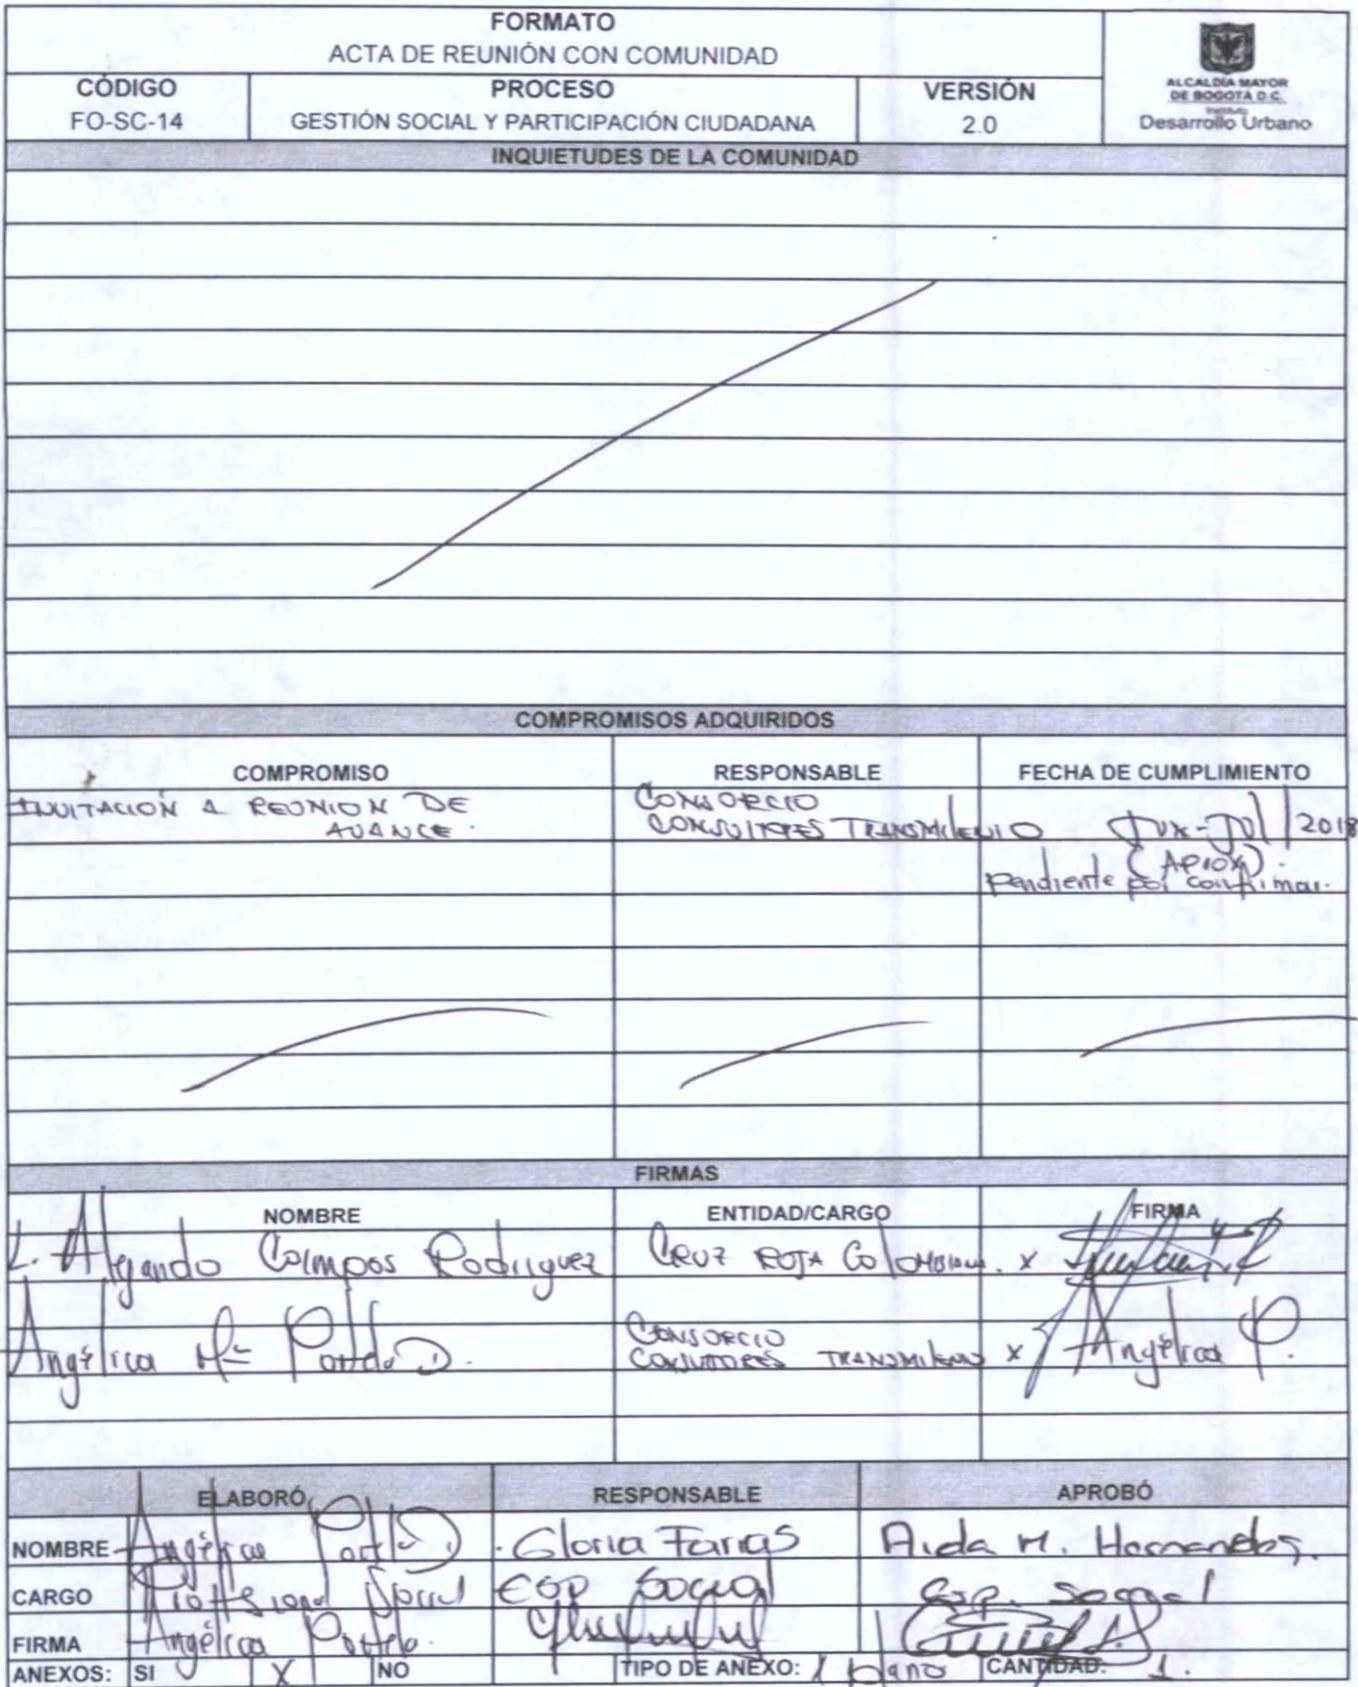 FORMATO
ACTA DE REUNIÓN CON COMUNIDAD
CÓDIGO
FO-SC-14
PROCESO
GESTIÓN SOCIAL Y PARTICIPACIÓN CIUDADANA
VERSIÓN
2.0
ALCALDÍA MAYOR
DE BOGOTÁ D.C.
Instituto
Desarrollo Urbano
INQUIETUDES DE LA COMUNIDAD
COMPROMISOS ADQUIRIDOS
COMPROMISO RESPONSABLE FECHA DE CUMPLIMIENTO
INVITACION A REUNION DE
AVANCE.
CONSORCIO
CONSULTORES TRANSMILENIO
JUN-JUL/2018
(Aprox).
Pendiente por confirmar.
FIRMAS
NOMBRE ENTIDAD/CARGO FIRMA
L. Alejandro Campos Rodriguez CRUZ ROJA COLOMBIANA. x
Angélica Mª Portela D.
CONSORCIO
CONSULTORES TRANSMILENIO x Angélica P.
ELABORÓ RESPONSABLE APROBÓ
NOMBRE Angélica Portela D. Gloria Farias Aida M. Hernandez.
CARGO Profesional Social Esp Social Esp. Social
FIRMA Angélica Portela.
ANEXOS: SI X NO TIPO DE ANEXO: 1 plano CANTIDAD: 1.